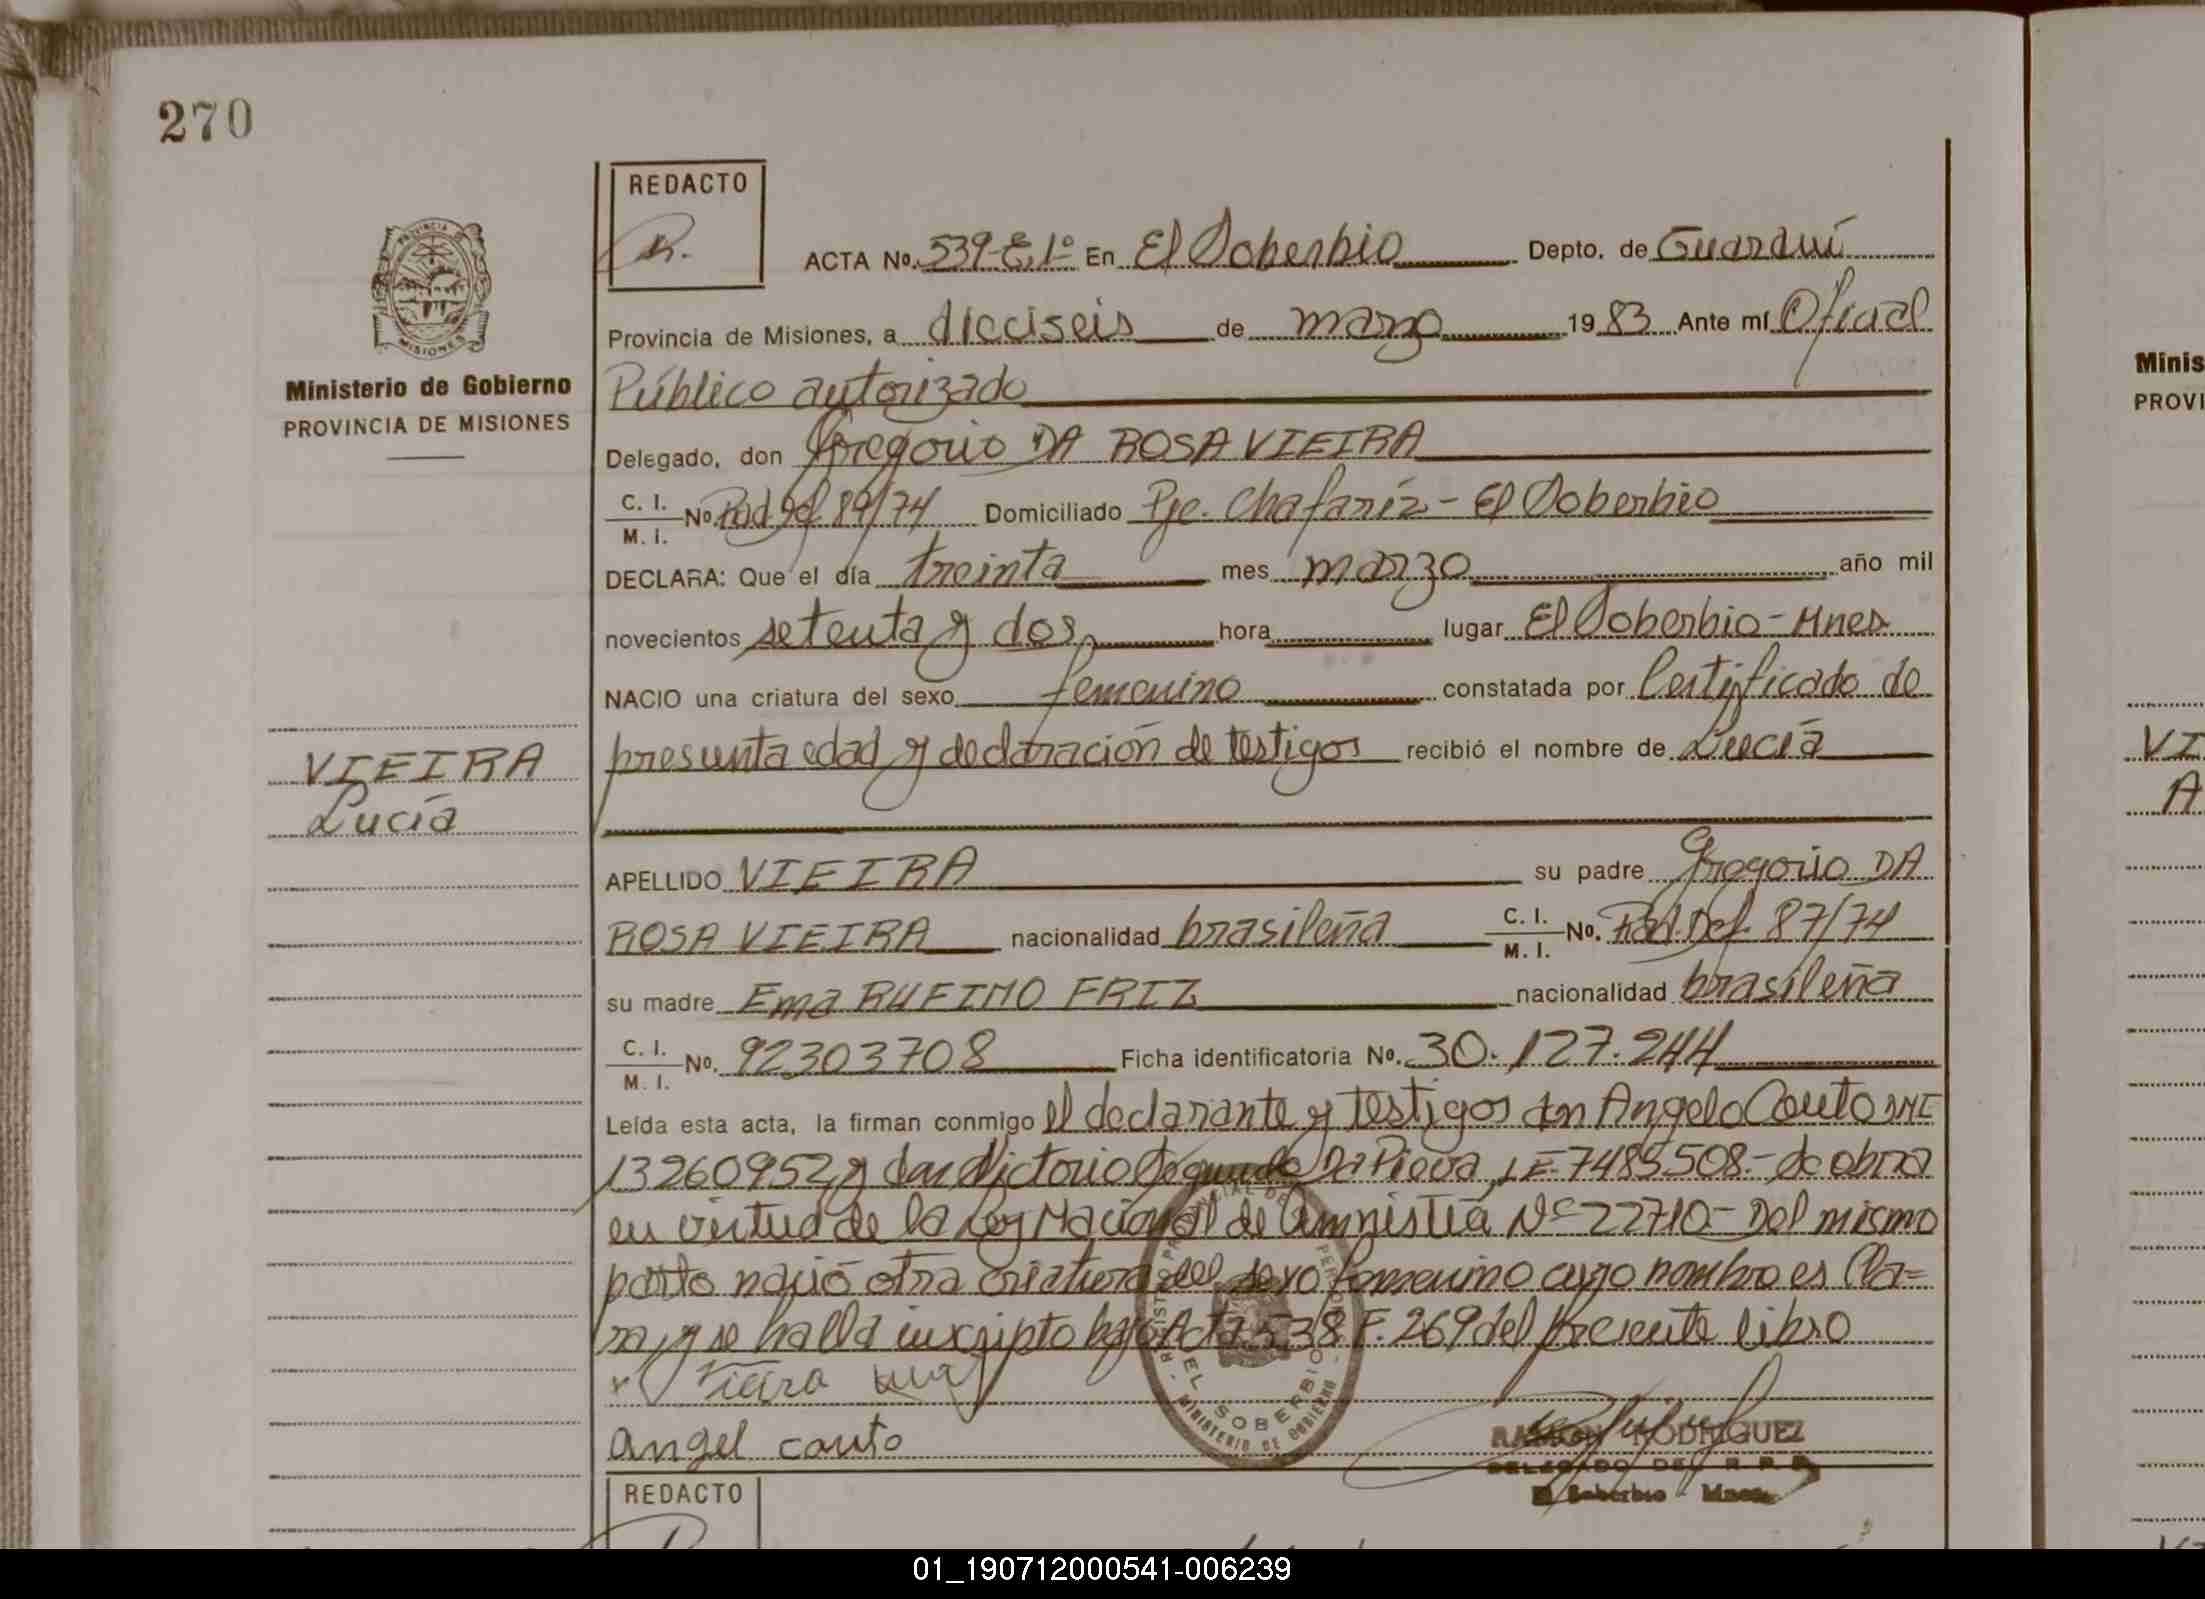 270
REDACTO
R.
ACTA No. 539-E, 1º En El Soberbio Depto. de Guaraní
PROVINCIA DE
MISIONES
Provincia de Misiones, a dieciseis de marzo 1983 Ante mí Oficial
Ministerio de Gobierno
PROVINCIA DE MISIONES
Público autorizado
Delegado, don Gregorio DA ROSA VIEIRA
C. I. M. I. No. Rad Def 87/74 Domiciliado Pje. Chafaríz - El Soberbio
DECLARA: Que el día treinta mes marzo año mil
novecientos setenta y dos, hora lugar El Soberbio - Mnes
NACIO una criatura del sexo femenino constatada por Certificado de
presunta edad y declaración de testigos recibió el nombre de Lucía
VIEIRA
Lucía
APELLIDO VIEIRA su padre Gregorio DA
ROSA VIEIRA nacionalidad brasileña C. I. M. I. No. Rad. Def. 87/74
su madre Ema RUFINO FRIZ nacionalidad brasileña
C. I. M. I. No. 92303708 Ficha identificatoria No. 30.127.244
Leída esta acta, la firman conmigo el declarante y testigos don Angelo Couto DNI
13260952 y don Victorio Segundo Da Pieva, LE. 7485508.- de obra
en virtud de la Ley Nacional de Amnistía Nº 22710- Del mismo
parto nació otra criatura del sexo femenino cuyo nombre es Cla=
ra, y se halla inscripto bajo Acta 538 F. 269 del presente libro
x Vieira
angel couto
EL SOBERBIO
MINISTERIO DE GOBIERNO
RAMON RODRIGUEZ
DELEGADO DEL R. P. P.
El Soberbio - Mnes.
REDACTO
Minis
PROVI
VI
A
01_190712000541-006239